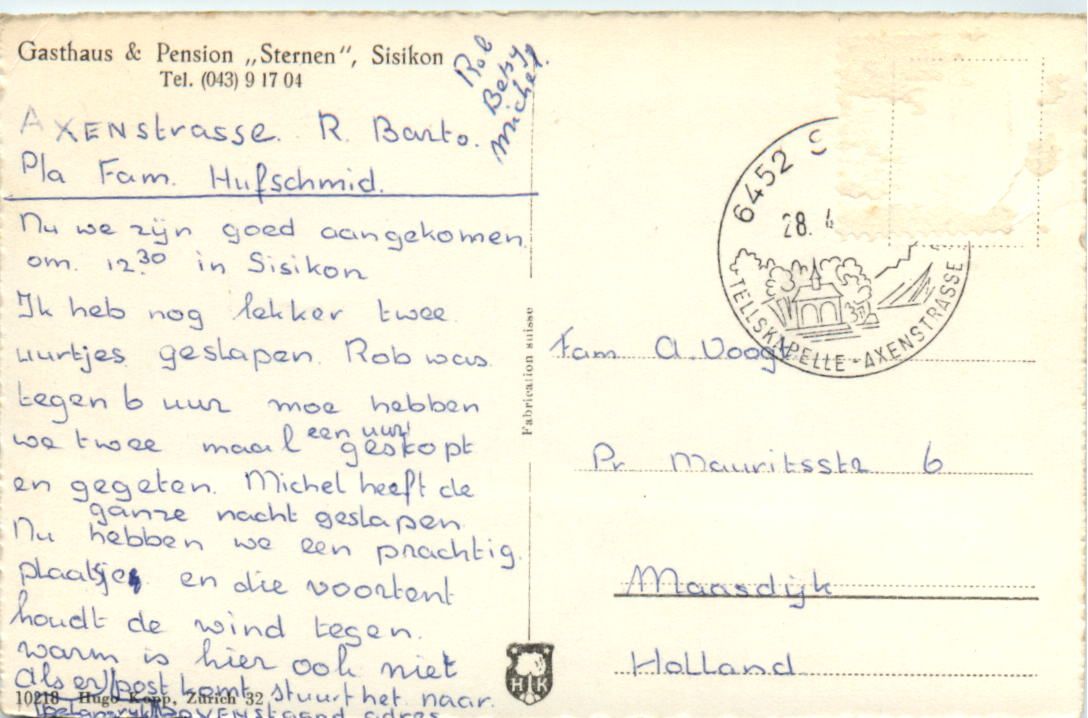 Gasthaus & Pension „Sternen“, Sisikon
Tel. (043) 9 17 04
Rob
Betsy
Michel.
AXENstrasse. R. Barto.
P/a Fam. Hufschmid.
Nu we zijn goed aangekomen
om. 12.30 in Sisikon
Ik heb nog lekker twee
uurtjes geslapen. Rob was
tegen 6 uur moe hebben
we twee maal een uur gestopt
en gegeten. Michel heeft de
ganze nacht geslapen
Nu hebben we een prachtig.
plaatsje en die voortent
houdt de wind tegen.
warm is hier ook niet
Als er post komt stuurt het naar.
belangrijke bovenstaand adres
10218 Hugo Kopp, Zürich 32
Fabrication suisse
HK
6452 S
28. 
TELLSKAPELLE - AXENSTRASSE
Fam A. Voogt
Pr Mauritsstr 6
Maasdijk
Holland